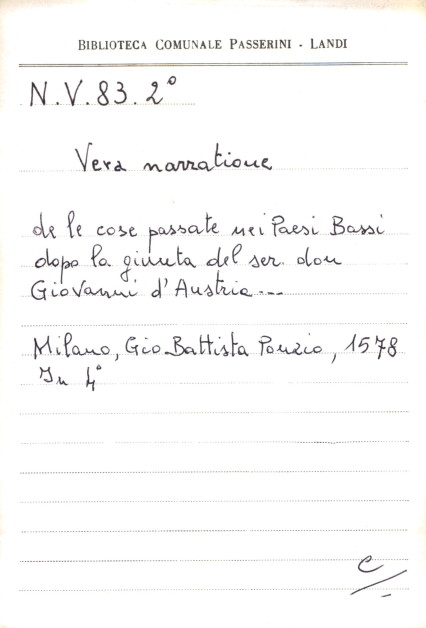 BIBLIOTECA COMUNALE PASSERINI - LANDI
N.V.83.2°
Vera narratione
de le cose passate nei Paesi Bassi
dopo la giunta del ser. don
Giovanni d'Austria...
Milano, Gio.Battista Ponzio, 1578
In 4°
C